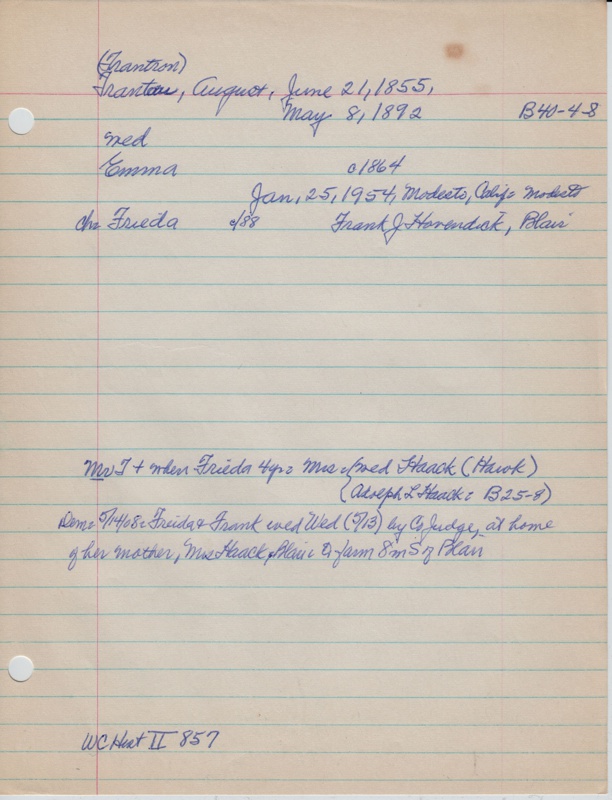 (Trantron)
Trantow, August, June 21, 1855,
May 8, 1892 B40-4-8
wed
Emma c1864
Jan, 25, 1954, Modesto, Calif: Modesto
ch: Frieda c/88 Frank J Hovendick, Blair
Mr T + when Frieda 4yr: Mrs wed Haack (Hawk)
(Adolph L Haack: B25-8)
Dem: 5/14/08: Freida & Frank wed Wed (5/13) by Co Judge, at home
of her mother, Mrs Haack, Blair: farm 8 m S of Blair
WCHist II 857